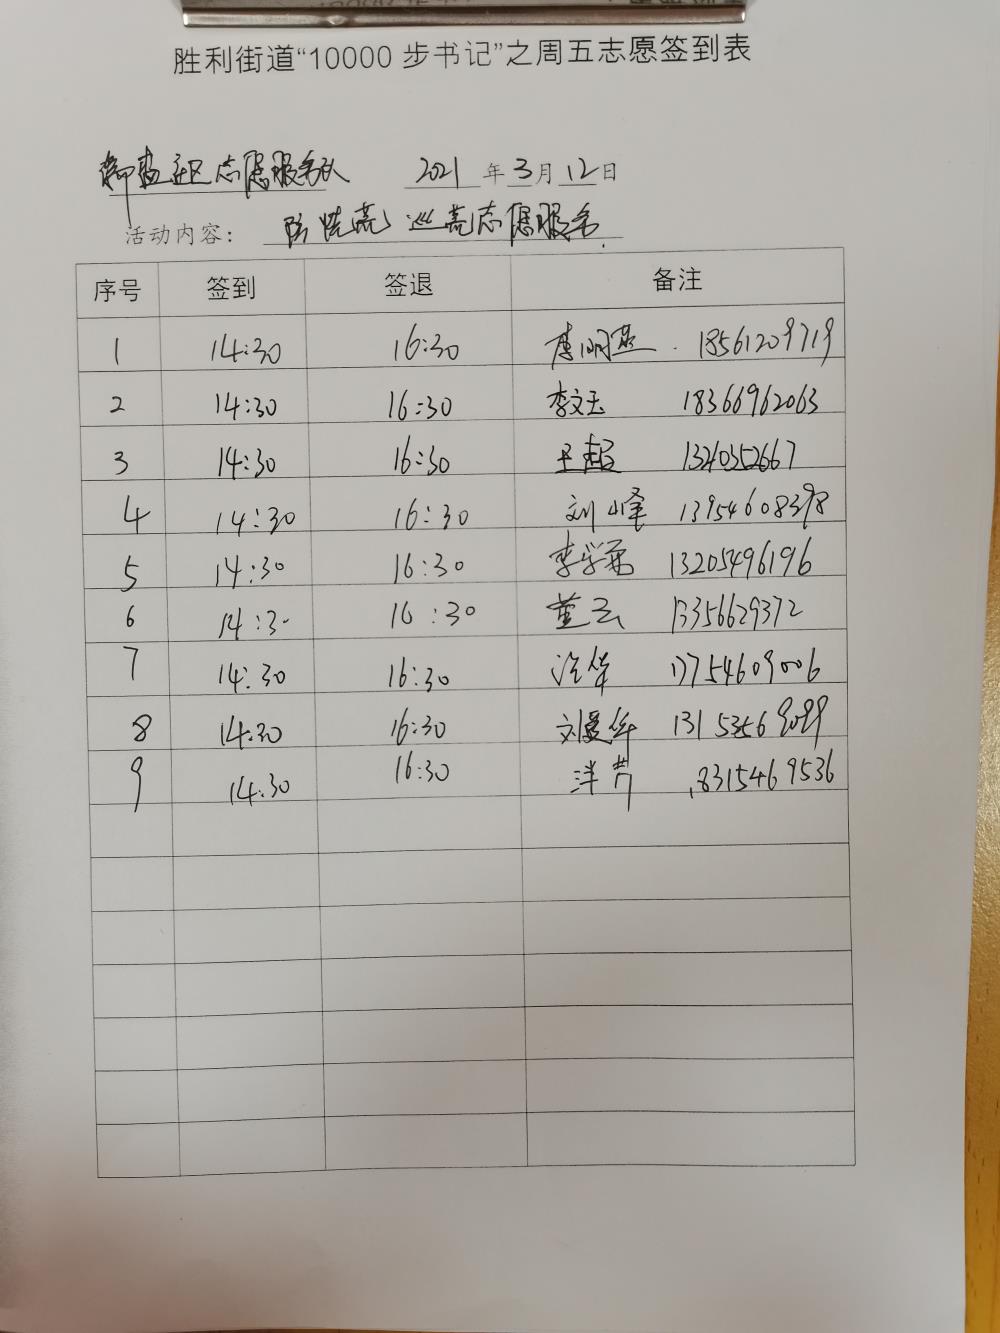 胜利街道“10000 步书记”之周五志愿签到表
社区志愿服务队 2021 年 3 月 12 日
活动内容： 防 巡 志愿服务
序号 签到 签退 备注
1 14:30 16:30 李明燕 18561209719
2 14:30 16:30 李文玉 18366962063
3 14:30 16:30 王超 13210352667
4 14:30 16:30 刘峰 13954608398
5 14:30 16:30 李学 13205496196
6 14:30 16:30 董云 13356629372
7 14:30 16:30 17754609006
8 14:30 16:30 刘爱华
9 14:30 16:30 18315469536